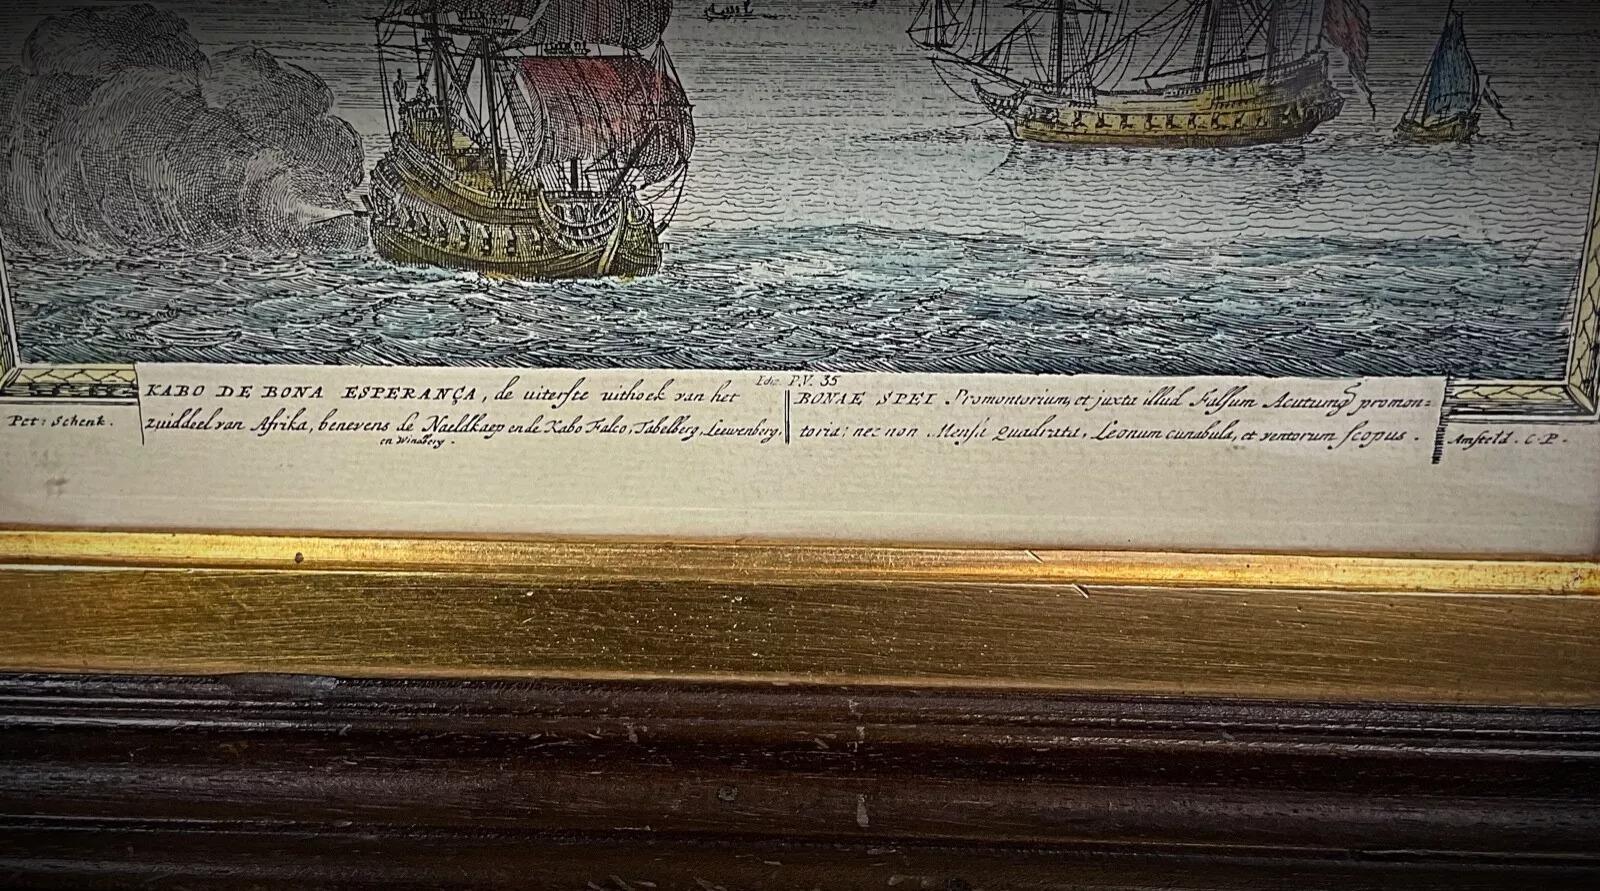 Idic. P.V. 35
KABO DE BONA ESPERANÇA, de uiterste uithoek van het
zuiddeel van Afrika, benevens de Naeldkaep en de Kabo Falco, Tabelberg, Leeuwenberg,
en Windberg.
BONAE SPEI Promontorium, et juxta illud Falsum Acutumq̃ promon=
toria; nec non Mensa Quadrata, Leonum cunabula, et ventorum scopus.
Pet: Schenk.
Amsteld. C.P.